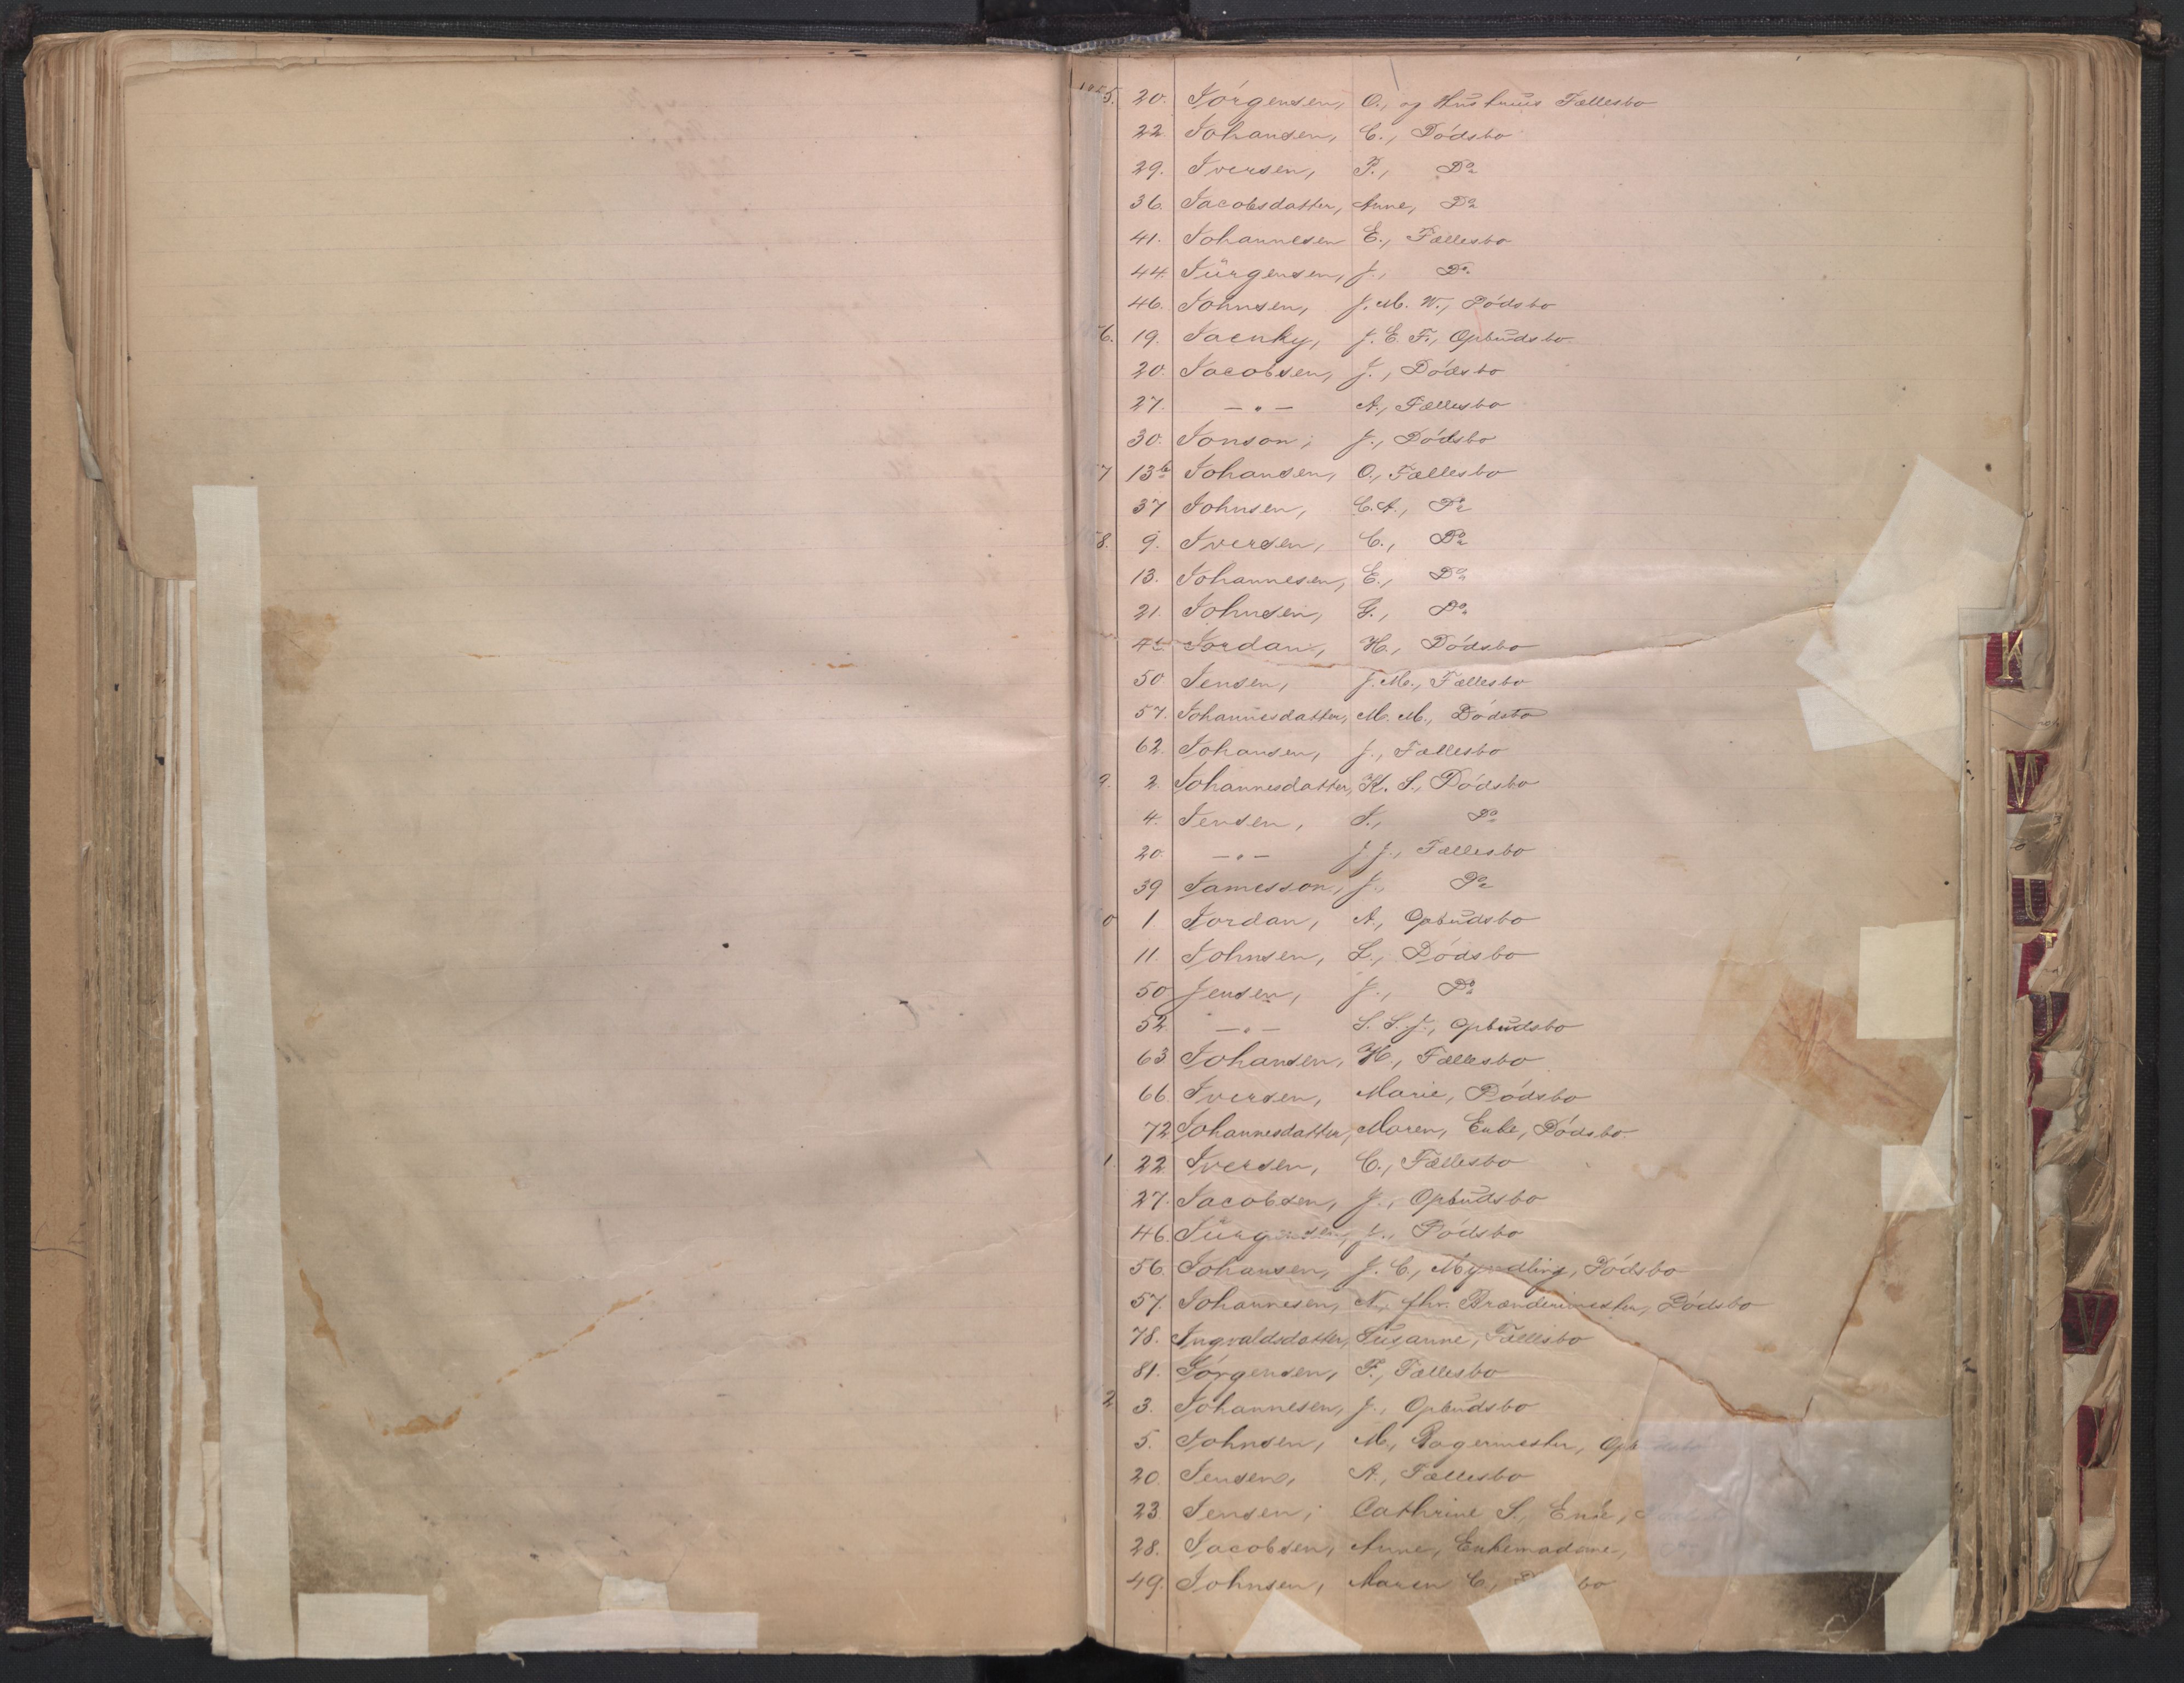 1855. 20. Jörgensen, O., og Hustrues Fællesbo
22. Johansen, C., Dódsbo
29. Iversen, P., Do
36. Jacobsdatter, Anne, Do
41. Johannesen E., Fællesbo
44. Jürgensen, J., Do
46. Johnsen, J. M. W., Dódsbo
6. 19. Jaenky, J. E. Fr., Opbudsbo
20. Jacobsen, J., Dódsbo
27. — " — A., Fællesbo
30. Jonson, J., Dódsbo
7 13b Johansen, O., Fællesbo
37 Johnsen, C. A., Do
8. 9. Iversen, C., Do
13. Johannesen, E., Do
21. Johnsen, G., Do
Jordan, H., Dódsbo
50 Jensen, J. M., Fællesbo
57. Johannesdatter, M. M., Dódsbo
62. Johansen, J., Fællesbo
9. 2. Johannesdatter, K. S., Dódsbo
4. Jensen, S., Do
20. — " — J. J., Fællesbo
39 Jamesson, J., Do
0 1 Jordan, A., Opbudsbo
11. Johnsen, L., Dódsbo
50 Jensen, J., Do
52. — " — S. S. J., Opbudsbo
63 Johansen, H., Fællesbo
66. Iversen, Marie, Dódsbo
72 Johannesdatter, Maren, Enke, Dódsbo
1. 22. Iversen, C., Fællesbo
27. Jacobsen, J., Opbudsbo
46. Jürgensen, J., Dódsbo
56. Johansen, J. C., Myndling, Dódsbo
57. Johannesen, N., fhv. Brænderimester, Dódsbo
78. Ingvaldsdatter, Susanne, Fællesbo
81. Jörgensen, P., Fællesbo
2 3. Johannesen, J., Opbudsbo
5. Johnsen, M., Bagermester, Opbudsbo
20. Jensen, A., Fællesbo
23. Jensen, Cathrine S., Enke,
28. Jacobsen, Anne, Enkemadame,
49. Johnsen, Maren C., Dódsbo
K
W
U
V